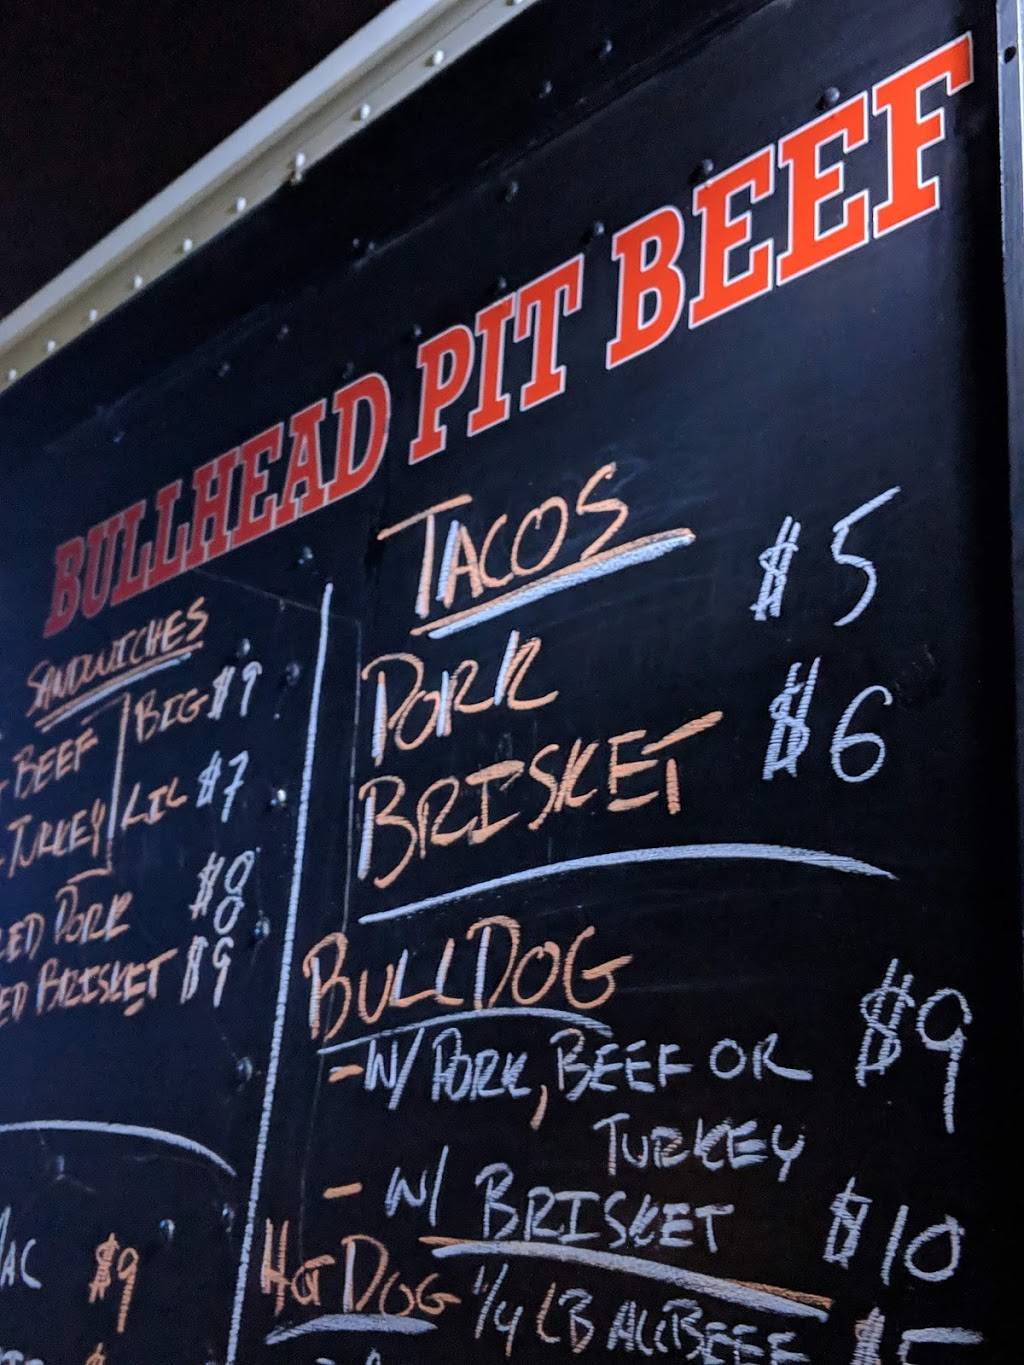 BULLHEAD PIT BEEF
SANDWICHES
BEEF BIG $9
TURKEY LIL $7
PORK $8
BRISKET $9
$9
TACOS
PORK $5
BRISKET $6
BULLDOG
- W/ PORK, BEEF OR $9
TURKEY
- W/ BRISKET $10
HOT DOG 1/4 LB ALL BEEF $5